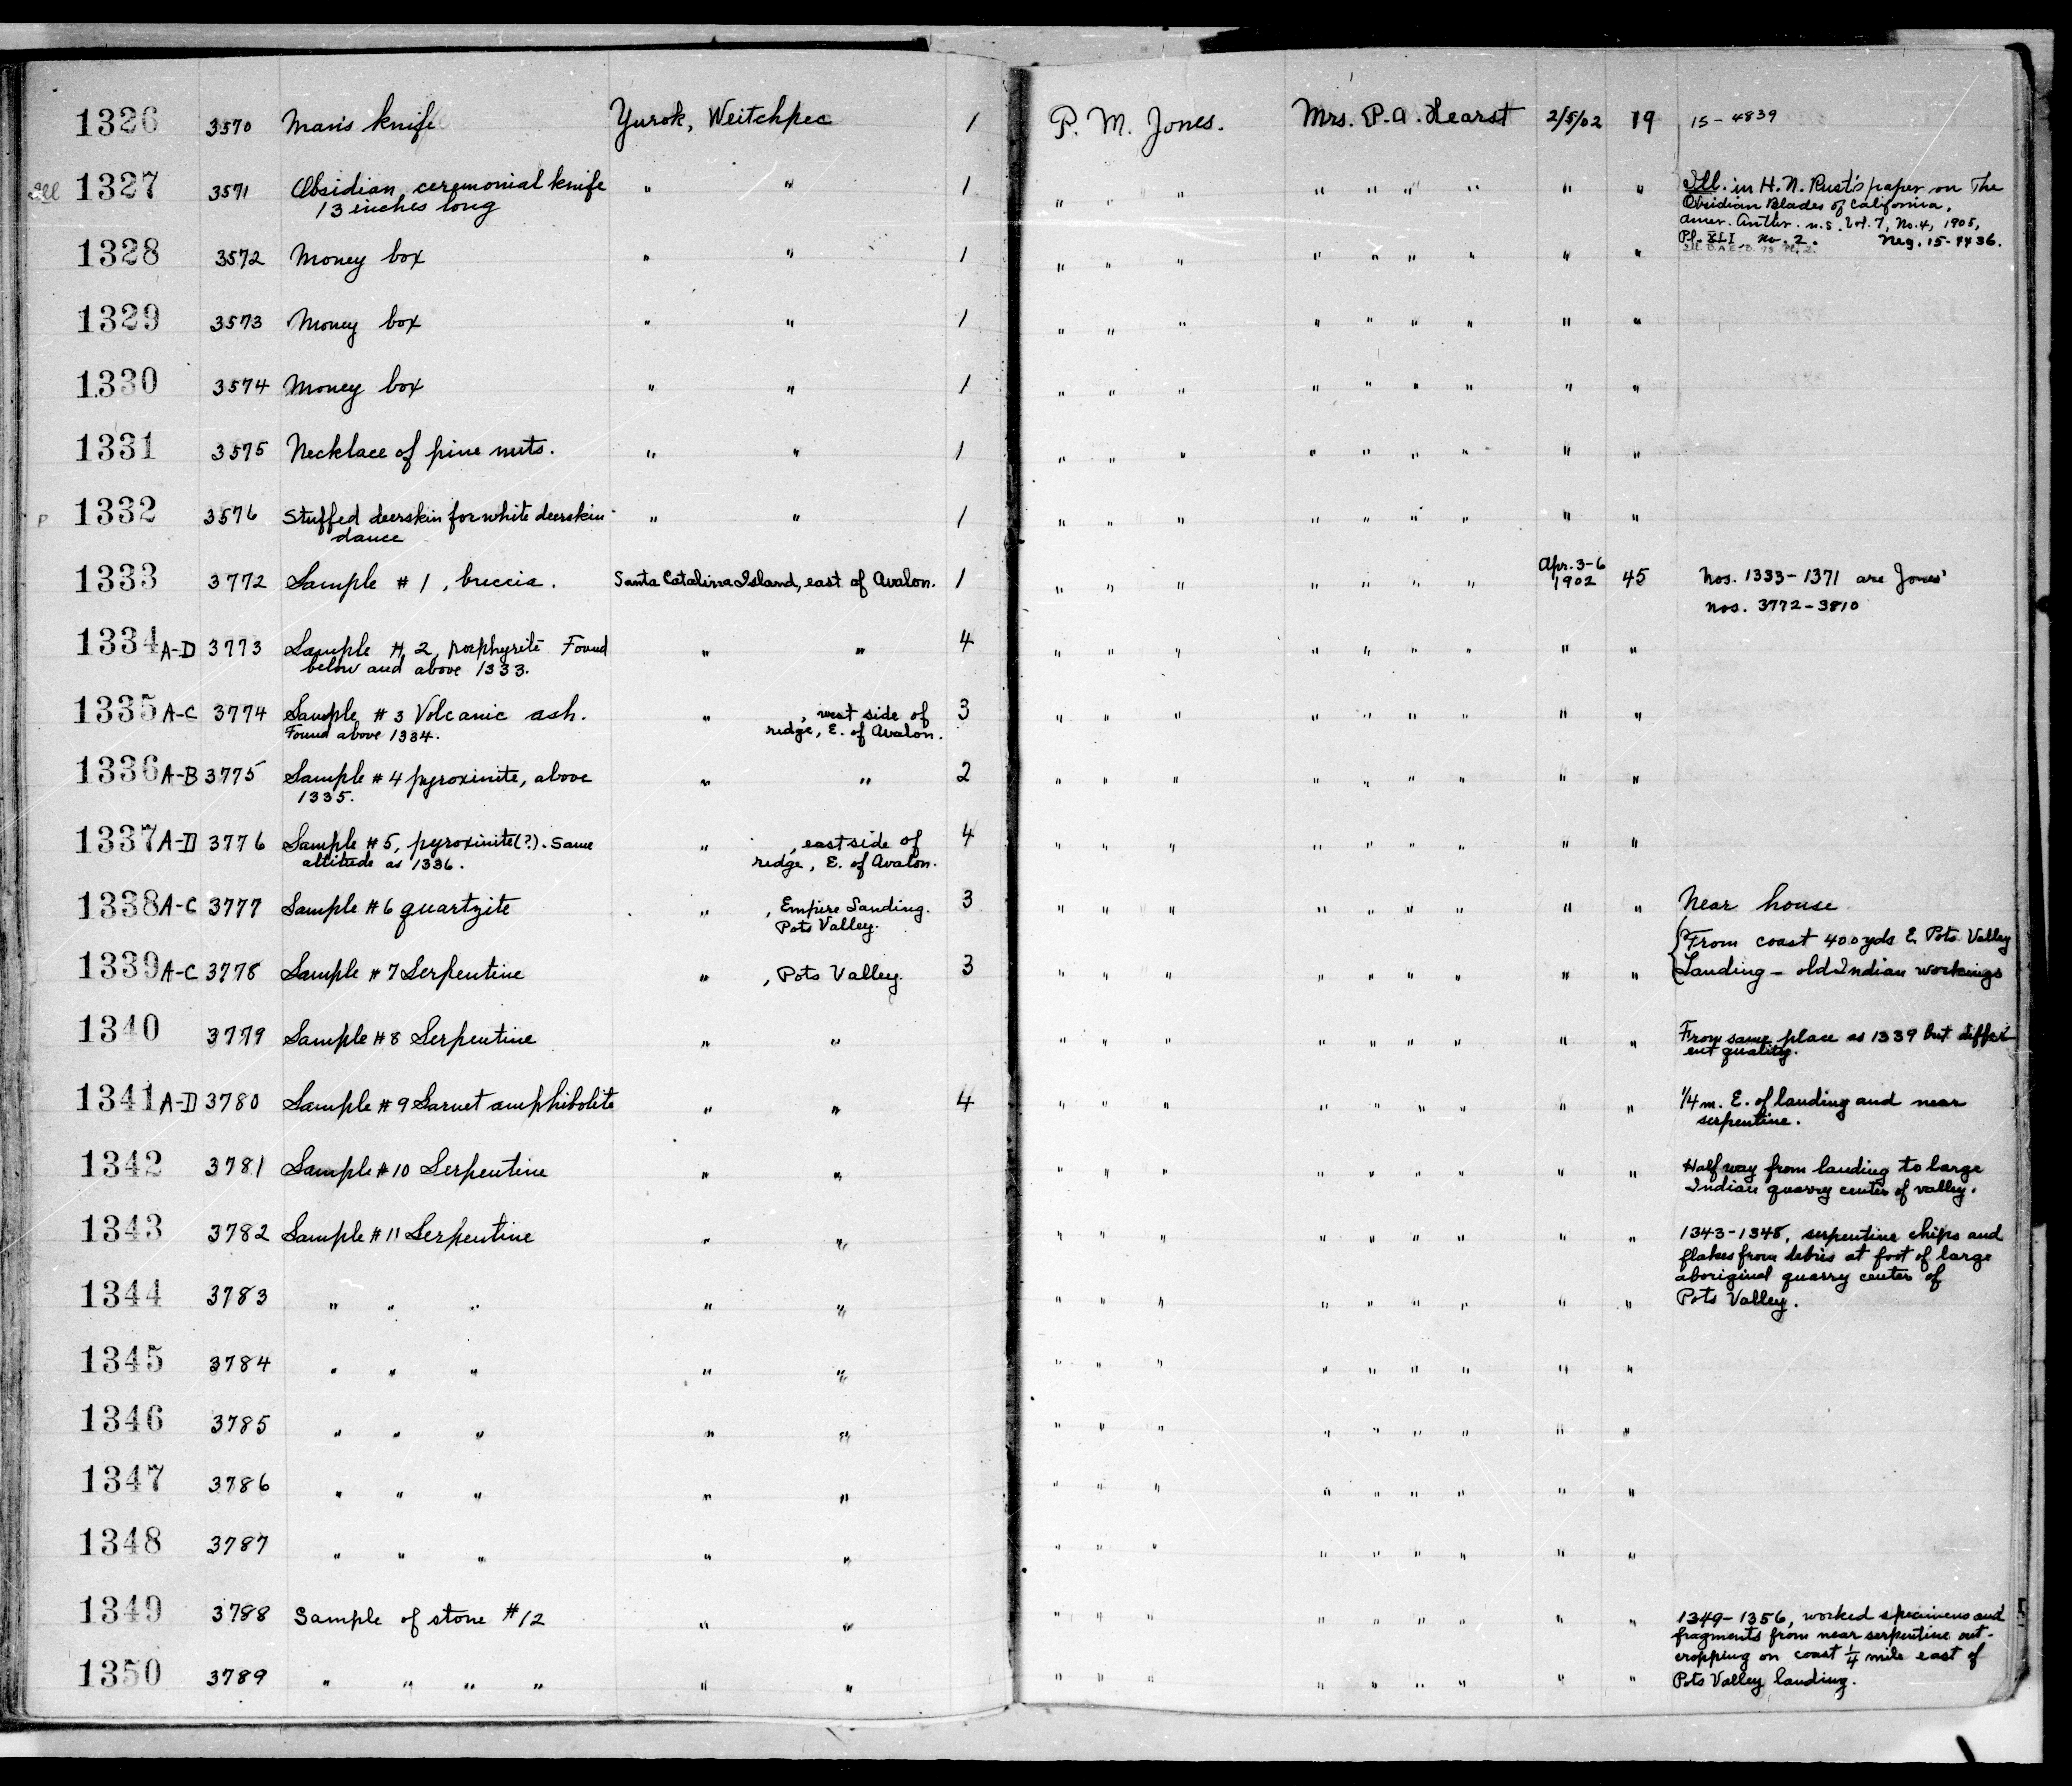 1326 3570 Man's knife Yurok, Weitchpec 1 P. M. Jones. Mrs. P. A. Hearst 2/5/02 19 15-4839
Ill 1327 3571 Obsidian ceremonial knife " " 1 " " " " " " " " " Ill. in H. N. Rust's paper on The
13 inches long Obsidian Blades of California,
Amer. Anthr. n.s. Vol. 7, No. 4, 1905,
1328 3572 Money box " " 1 " " " " " " " " " Pl. XLI No. 2. Neg. 15-7436.
1329 3573 Money box " " 1 " " " " " " " " "
1330 3574 Money box " " 1 " " " " " " " " "
1331 3575 Necklace of pine nuts. " " 1 " " " " " " " " "
P 1332 3576 Stuffed deerskin for white deerskin " " 1 " " " " " " " " "
dance
1333 3772 Sample #1, breccia. Santa Catalina Island, east of Avalon. 1 " " " " " " " Apr. 3-6 1902 45 Nos. 1333-1371 are Jones'
nos. 3772-3810
1334 A-D 3773 Sample # 2, porphyrite Found " " 4 " " " " " " " " "
below and above 1333.
1335 A-C 3774 Sample #3 Volcanic ash. " , west side of 3 " " " " " " " " "
Found above 1334. ridge, E. of Avalon.
1336 A-B 3775 Sample #4 pyroxinite, above " " 2 " " " " " " " " "
1335.
1337 A-D 3776 Sample #5, pyroxinite(?). Same " , east side of 4 " " " " " " " " "
altitude as 1336. ridge, E. of Avalon.
1338 A-C 3777 Sample #6 quartzite " , Empire Landing. 3 " " " " " " " " " Near house
Pots Valley.
From coast 400yds E. Pots Valley
1339 A-C 3778 Sample #7 Serpentine " , Pots Valley. 3 " " " " " " " " " Landing - old Indian workings
1340 3779 Sample #8 Serpentine " " " " " " " " " " " From same place as 1339 but differ
ent quality.
1341 A-D 3780 Sample #9 Garnet amphibolite " " 4 " " " " " " " " " 1/4 m. E. of landing and near
serpentine.
1342 3781 Sample #10 Serpentine " " " " " " " " " " " Half way from landing to large
Indian quarry center of valley.
1343 3782 Sample #11 Serpentine " " " " " " " " " " " 1343-1348, serpentine chips and
flakes from debris at foot of large
aboriginal quarry center of
1344 3783 " " " " " " " " " " " " " " Pots Valley.
1345 3784 " " " " " " " " " " " " " "
1346 3785 " " " " " " " " " " " " " "
1347 3786 " " " " " " " " " " " " " "
1348 3787 " " " " " " " " " " " " " "
1349 3788 Sample of stone #12 " " " " " " " " " " " 1349-1356, worked specimens and
fragments from near serpentine out-
cropping on coast 1/4 mile east of
1350 3789 " " " " " " " " " " " " " " " Pots Valley landing.